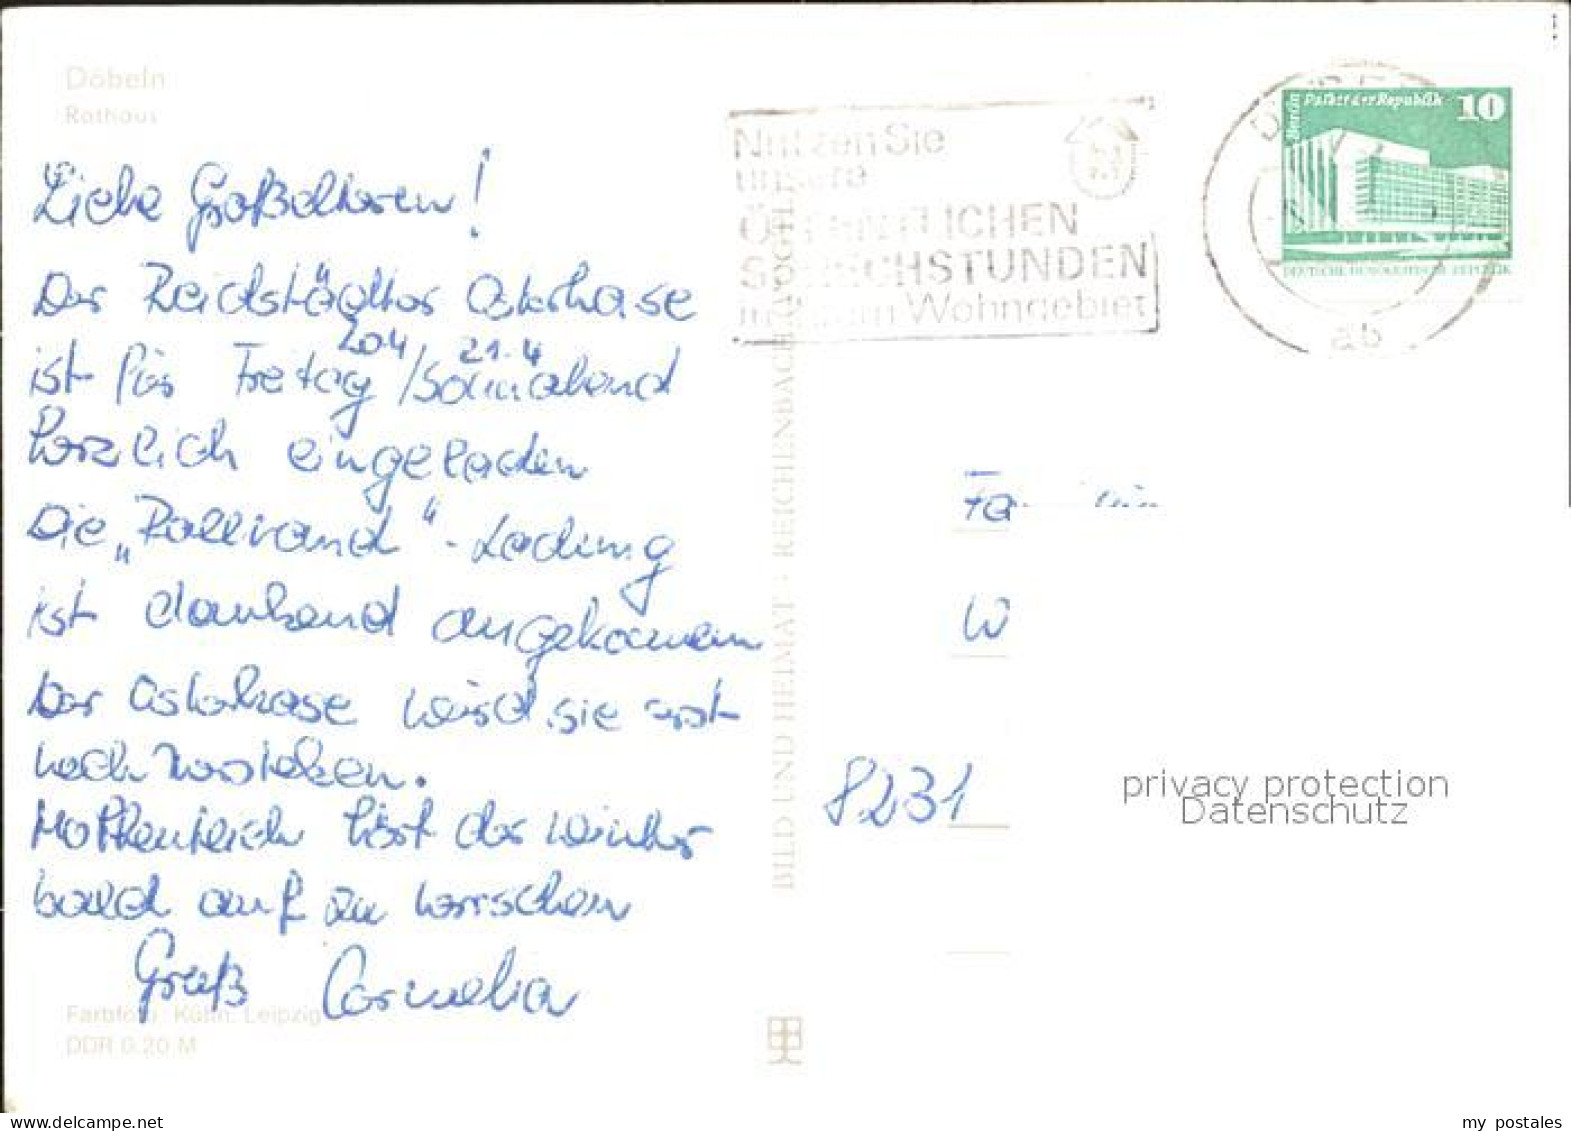 Döbeln
Rathaus
Liebe Großeltern!
Der Reichstädter Osterhase
20.4. 21.4
ist für Freitag/Sonnabend
herzlich eingeladen
Die „Pallwand“-Ladung
ist dankend angekommen
Der Osterhase wird sie erst
noch verstecken.
Hoffentlich hört der Winter
bald auf zu herrschen
Gruß Cornelia
Farbfoto: Kühn, Leipzig
DDR 0.20 M
BILD UND HEIMAT · REICHENBACH (VOGTL)
Nutzen Sie
unsere
ÖFFENTLICHEN
SPRECHSTUNDEN
in Wohngebiet
ab
Berlin Palast der Republik 10
DEUTSCHE DEMOKRATISCHE REPUBLIK
W
8231
privacy protection
Datenschutz
my postales